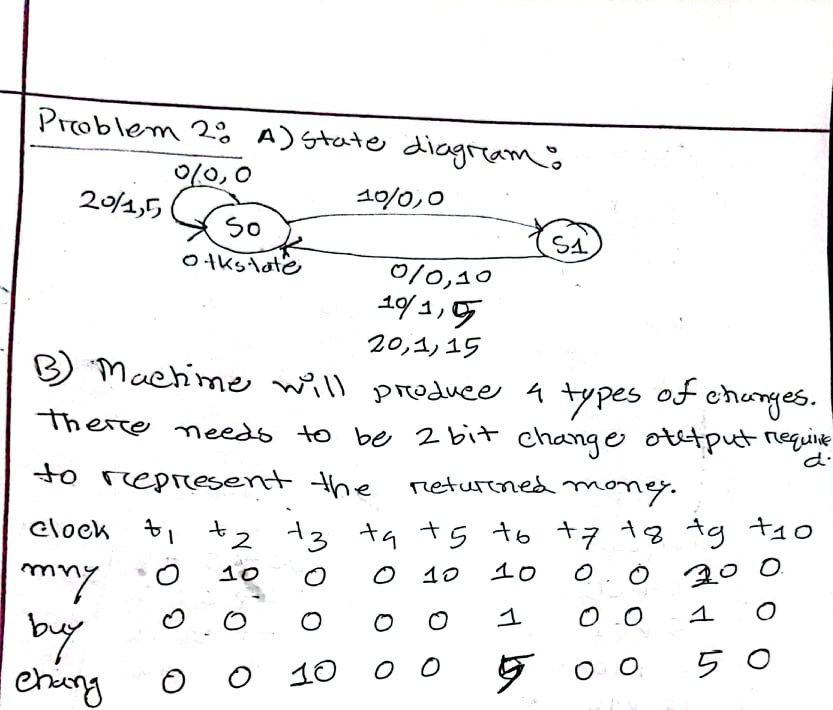 Problem 2: A) State diagram:
0/0,0
20/1,5
10/0,0
S0
S1
0 tk state
0/0,10
10/1,5
20,1,15
B) Machine will produce 4 types of changes.
There needs to be 2 bit change output required.
to represent the returned money.
clock t1 t2 t3 t4 t5 t6 t7 t8 t9 t10
mny 0 10 0 0 10 10 0 0 20 0
buy 0 0 0 0 0 1 0 0 1 0
chang 0 0 10 0 0 5 0 0 5 0